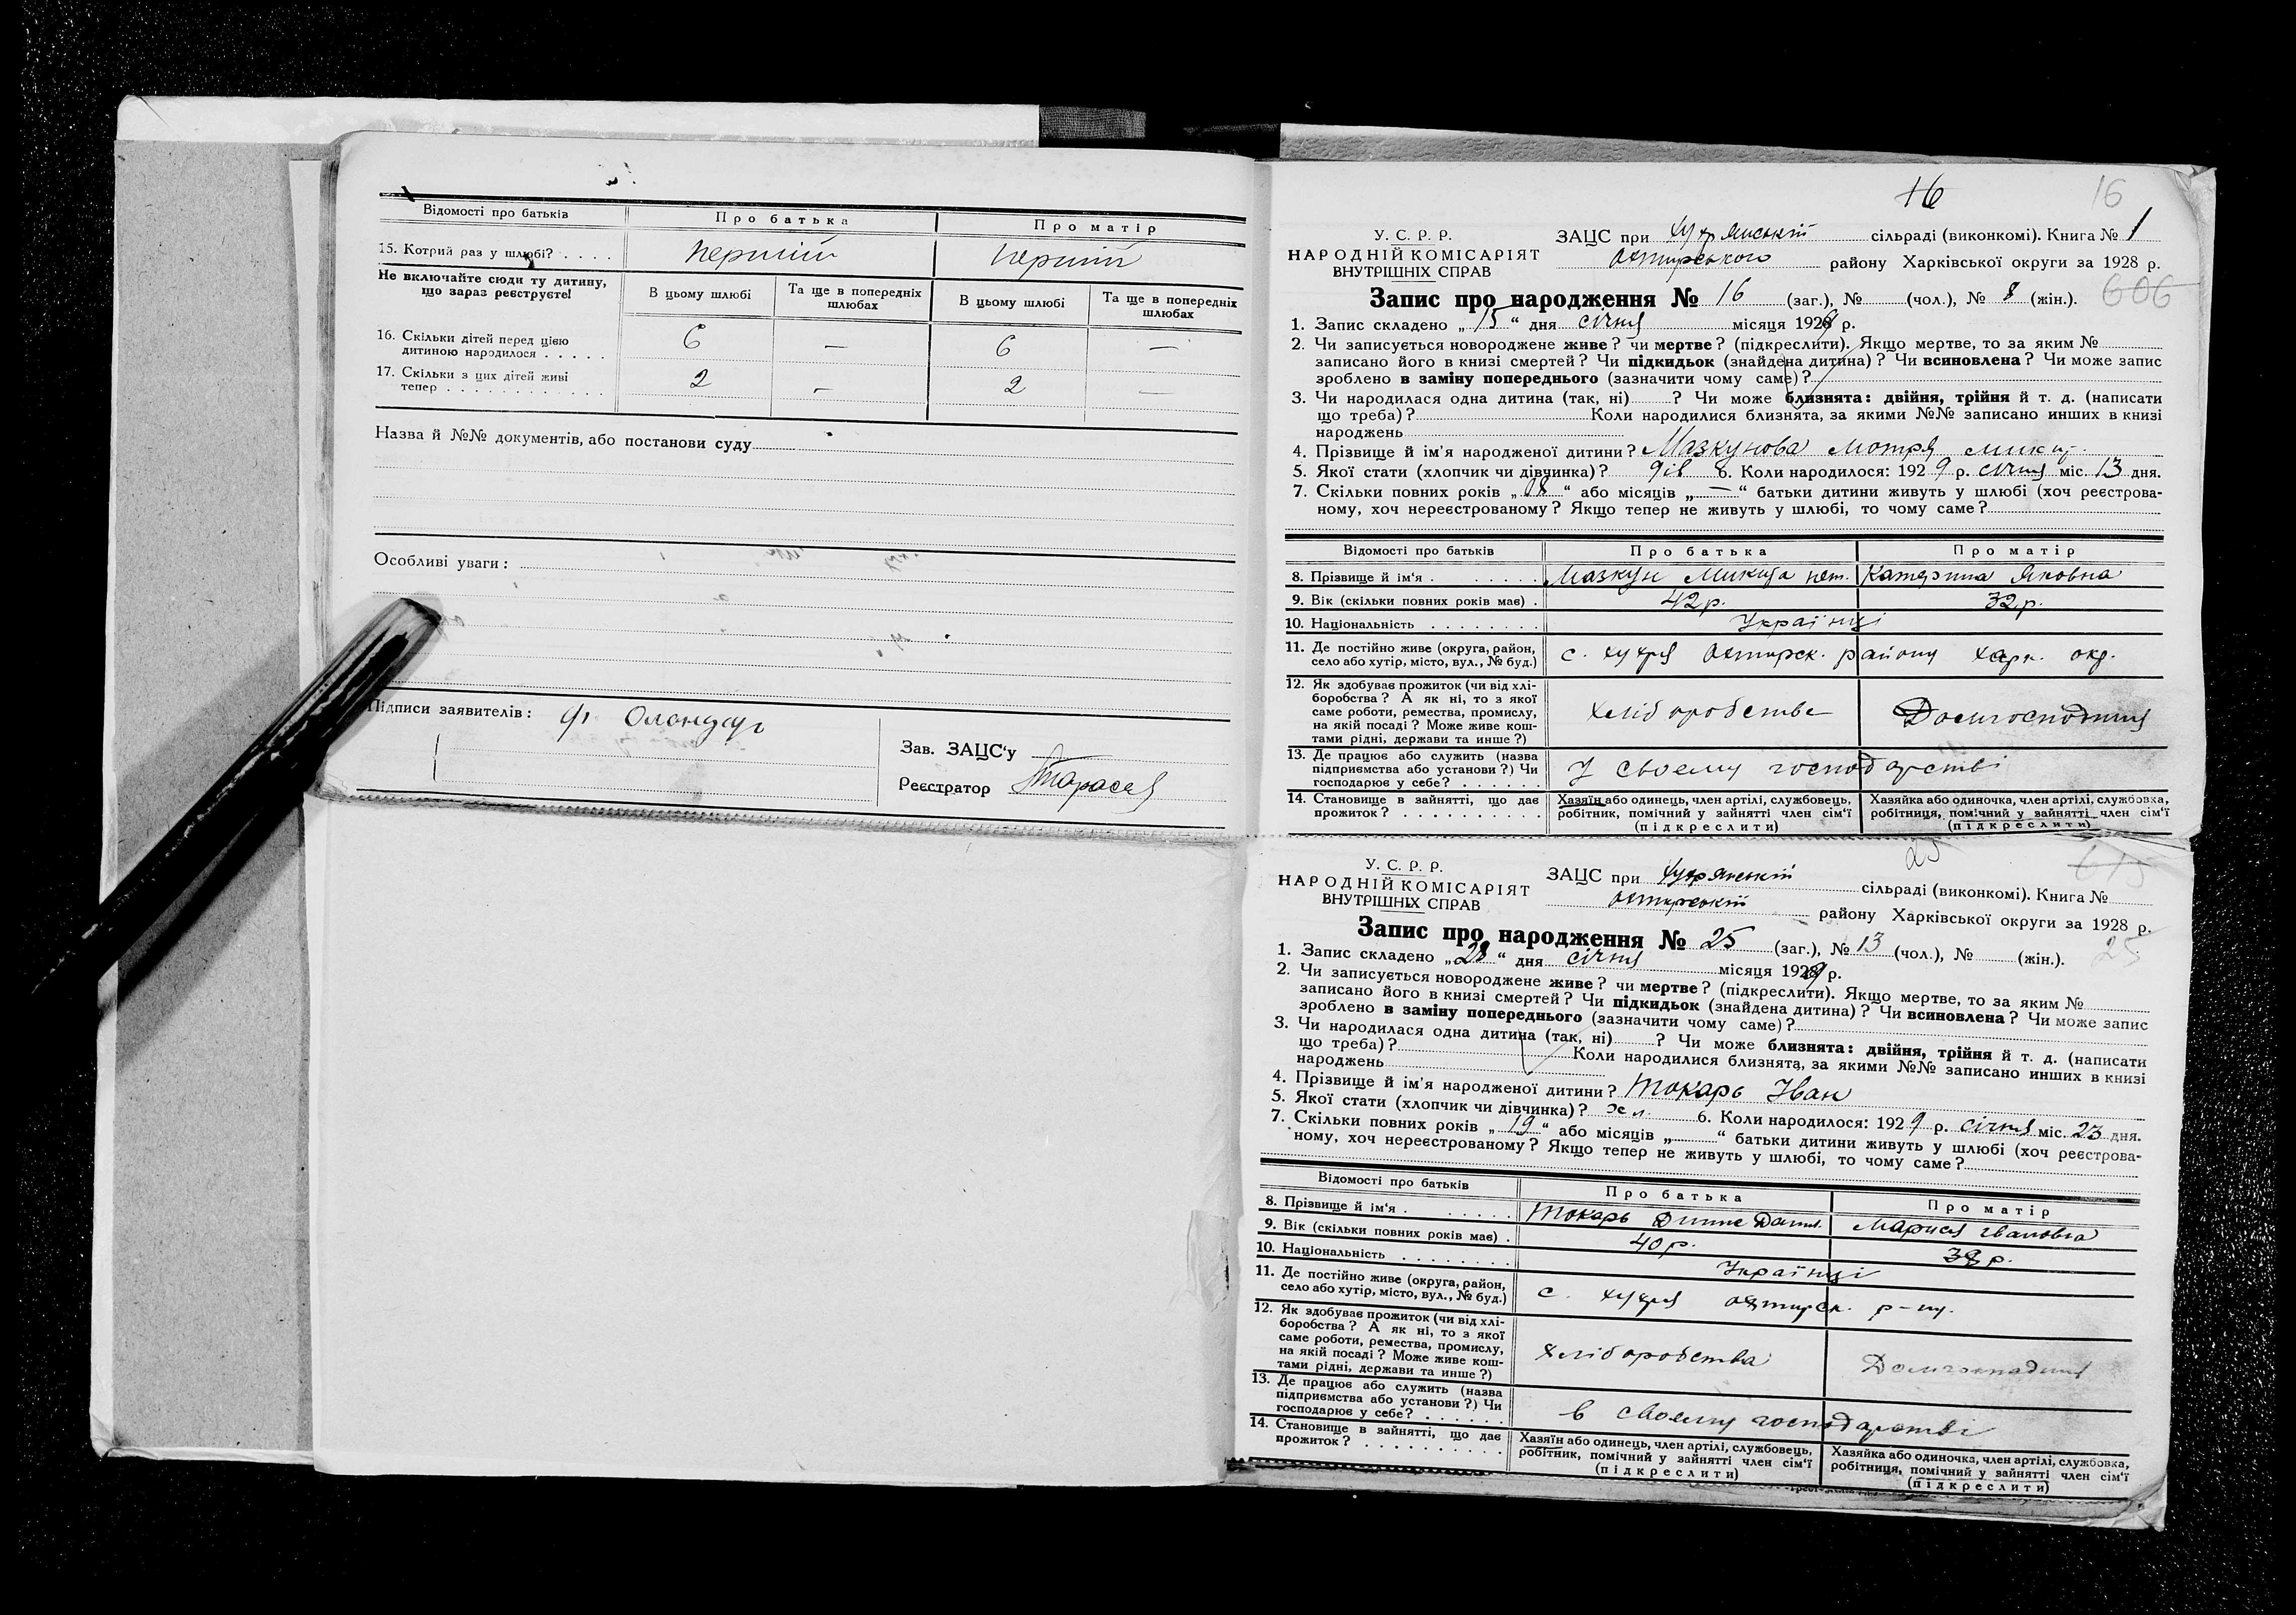 Відомості про батьків Про батька Про матір
15. Котрий раз у шлюбі? . . . . перший перший
Не включайте сюди ту дитину, що зараз реєструєте!
В цьому шлюбі Та ще в попередніх шлюбах В цьому шлюбі Та ще в попередніх шлюбах
16. Скільки дітей перед цією
дитиною народилося . . . . . 6 — 6 —
17. Скільки з цих дітей живі
тепер . . . . . . . . . . . . 2 — 2 —
Назва й №№ документів, або постанови суду
Особливі уваги:
Підписи заявителів:
Зав. ЗАЦС'у
Реєстратор
16 16
У. С. Р. Р.
НАРОДНІЙ КОМІСАРІЯТ
ВНУТРІШНІХ СПРАВ
ЗАЦС при Хухрянській сільраді (виконкомі). Книга № 1
Охтирського району Харківської округи за 1928 р.
606
Запис про народження № 16 (заг.), № (чол.), № 8 (жін.).
1. Запис складено „ 15 “ дня січня місяця 1929 р.
2. Чи записується новороджене живе? чи мертве? (підкреслити). Якщо мертве, то за яким №
записано його в книзі смертей? Чи підкидьок (знайдена дитина)? Чи всиновлена? Чи може запис
зроблено в заміну попереднього (зазначити чому саме)?
3. Чи народилася одна дитина (так, ні) ? Чи може близнята: двійня, трійня й т. д. (написати
що треба)? Коли народилися близнята, за якими №№ записано инших в книзі
народжень
4. Прізвище й ім'я народженої дитини? Мазкунова Мотря Микит.
5. Якої стати (хлопчик чи дівчинка)? дів 6. Коли народилося: 1929 р. січня міс. 13 дня.
7. Скільки повних років „ “ або місяців „ — “ батьки дитини живуть у шлюбі (хоч реєстрова-
ному, хоч нереєстрованому? Якщо тепер не живуть у шлюбі, то чому саме?
Відомості про батьків Про батька Про матір
8. Прізвище й ім'я . Мазкун Микита Катерина Яковна
9. Вік (скільки повних років має) . 42 р. 32 р.
10. Національність . . . . . . . . Українці
11. Де постійно живе (округа, район,
село або хутір, місто, вул., № буд.) с. Хухря Охтирск. району Харк. окр.
12. Як здобуває прожиток (чи від хлі-
боробства? А як ні, то з якої
саме роботи, ремества, промислу,
на якій посаді? Може живе кош-
тами рідні, держави та инше?) Хліборобство Домгосподиня
13. Де працює або служить (назва
підприємства або установи?) Чи
господарює у себе? . . . . . . У своєму господарстві
14. Становище в зайнятті, що дає
прожиток? . . . . . . . . . .
Хазяїн або одинець, член артілі, службовець,
робітник, помічний у зайнятті член сім'ї
(підкреслити)
Хазяйка або одиночка, член артілі, службовка,
робітниця, помічний у зайнятті член сім'ї
(підкреслити)
25 615
У. С. Р. Р.
НАРОДНІЙ КОМІСАРІЯТ
ВНУТРІШНІХ СПРАВ
ЗАЦС при Хухрянській сільраді (виконкомі). Книга №
Охтирській району Харківської округи за 1928 р.
25
Запис про народження № 25 (заг.), № 13 (чол.), № (жін.).
1. Запис складено „ 28 “ дня січня місяця 1929 р.
2. Чи записується новороджене живе? чи мертве? (підкреслити). Якщо мертве, то за яким №
записано його в книзі смертей? Чи підкидьок (знайдена дитина)? Чи всиновлена? Чи може запис
зроблено в заміну попереднього (зазначити чому саме)?
3. Чи народилася одна дитина (так, ні) ? Чи може близнята: двійня, трійня й т. д. (написати
що треба)? Коли народилися близнята, за якими №№ записано инших в книзі
народжень
4. Прізвище й ім'я народженої дитини? Токарь Іван
5. Якої стати (хлопчик чи дівчинка)? хл. 6. Коли народилося: 1929 р. січня міс. 23 дня.
7. Скільки повних років „ 19 “ або місяців „ “ батьки дитини живуть у шлюбі (хоч реєстрова-
ному, хоч нереєстрованому? Якщо тепер не живуть у шлюбі, то чому саме?
Відомості про батьків Про батька Про матір
8. Прізвище й ім'я . Токарь Данил. Мария Івановна
9. Вік (скільки повних років має) . 40 р. 38 р.
10. Національність . . . . . . . . Українці
11. Де постійно живе (округа, район,
село або хутір, місто, вул., № буд.) с. Хухря Охтирск. р-ну.
12. Як здобуває прожиток (чи від хлі-
боробства? А як ні, то з якої
саме роботи, ремества, промислу,
на якій посаді? Може живе кош-
тами рідні, держави та инше?) Хліборобства Домгосподиня
13. Де працює або служить (назва
підприємства або установи?) Чи
господарює у себе? . . . . . . в своєму господарстві
14. Становище в зайнятті, що дає
прожиток? . . . . . . . . . .
Хазяїн або одинець, член артілі, службовець,
робітник, помічний у зайнятті член сім'ї
(підкреслити)
Хазяйка або одиночка, член артілі, службовка,
робітниця, помічний у зайнятті член сім'ї
(підкреслити)